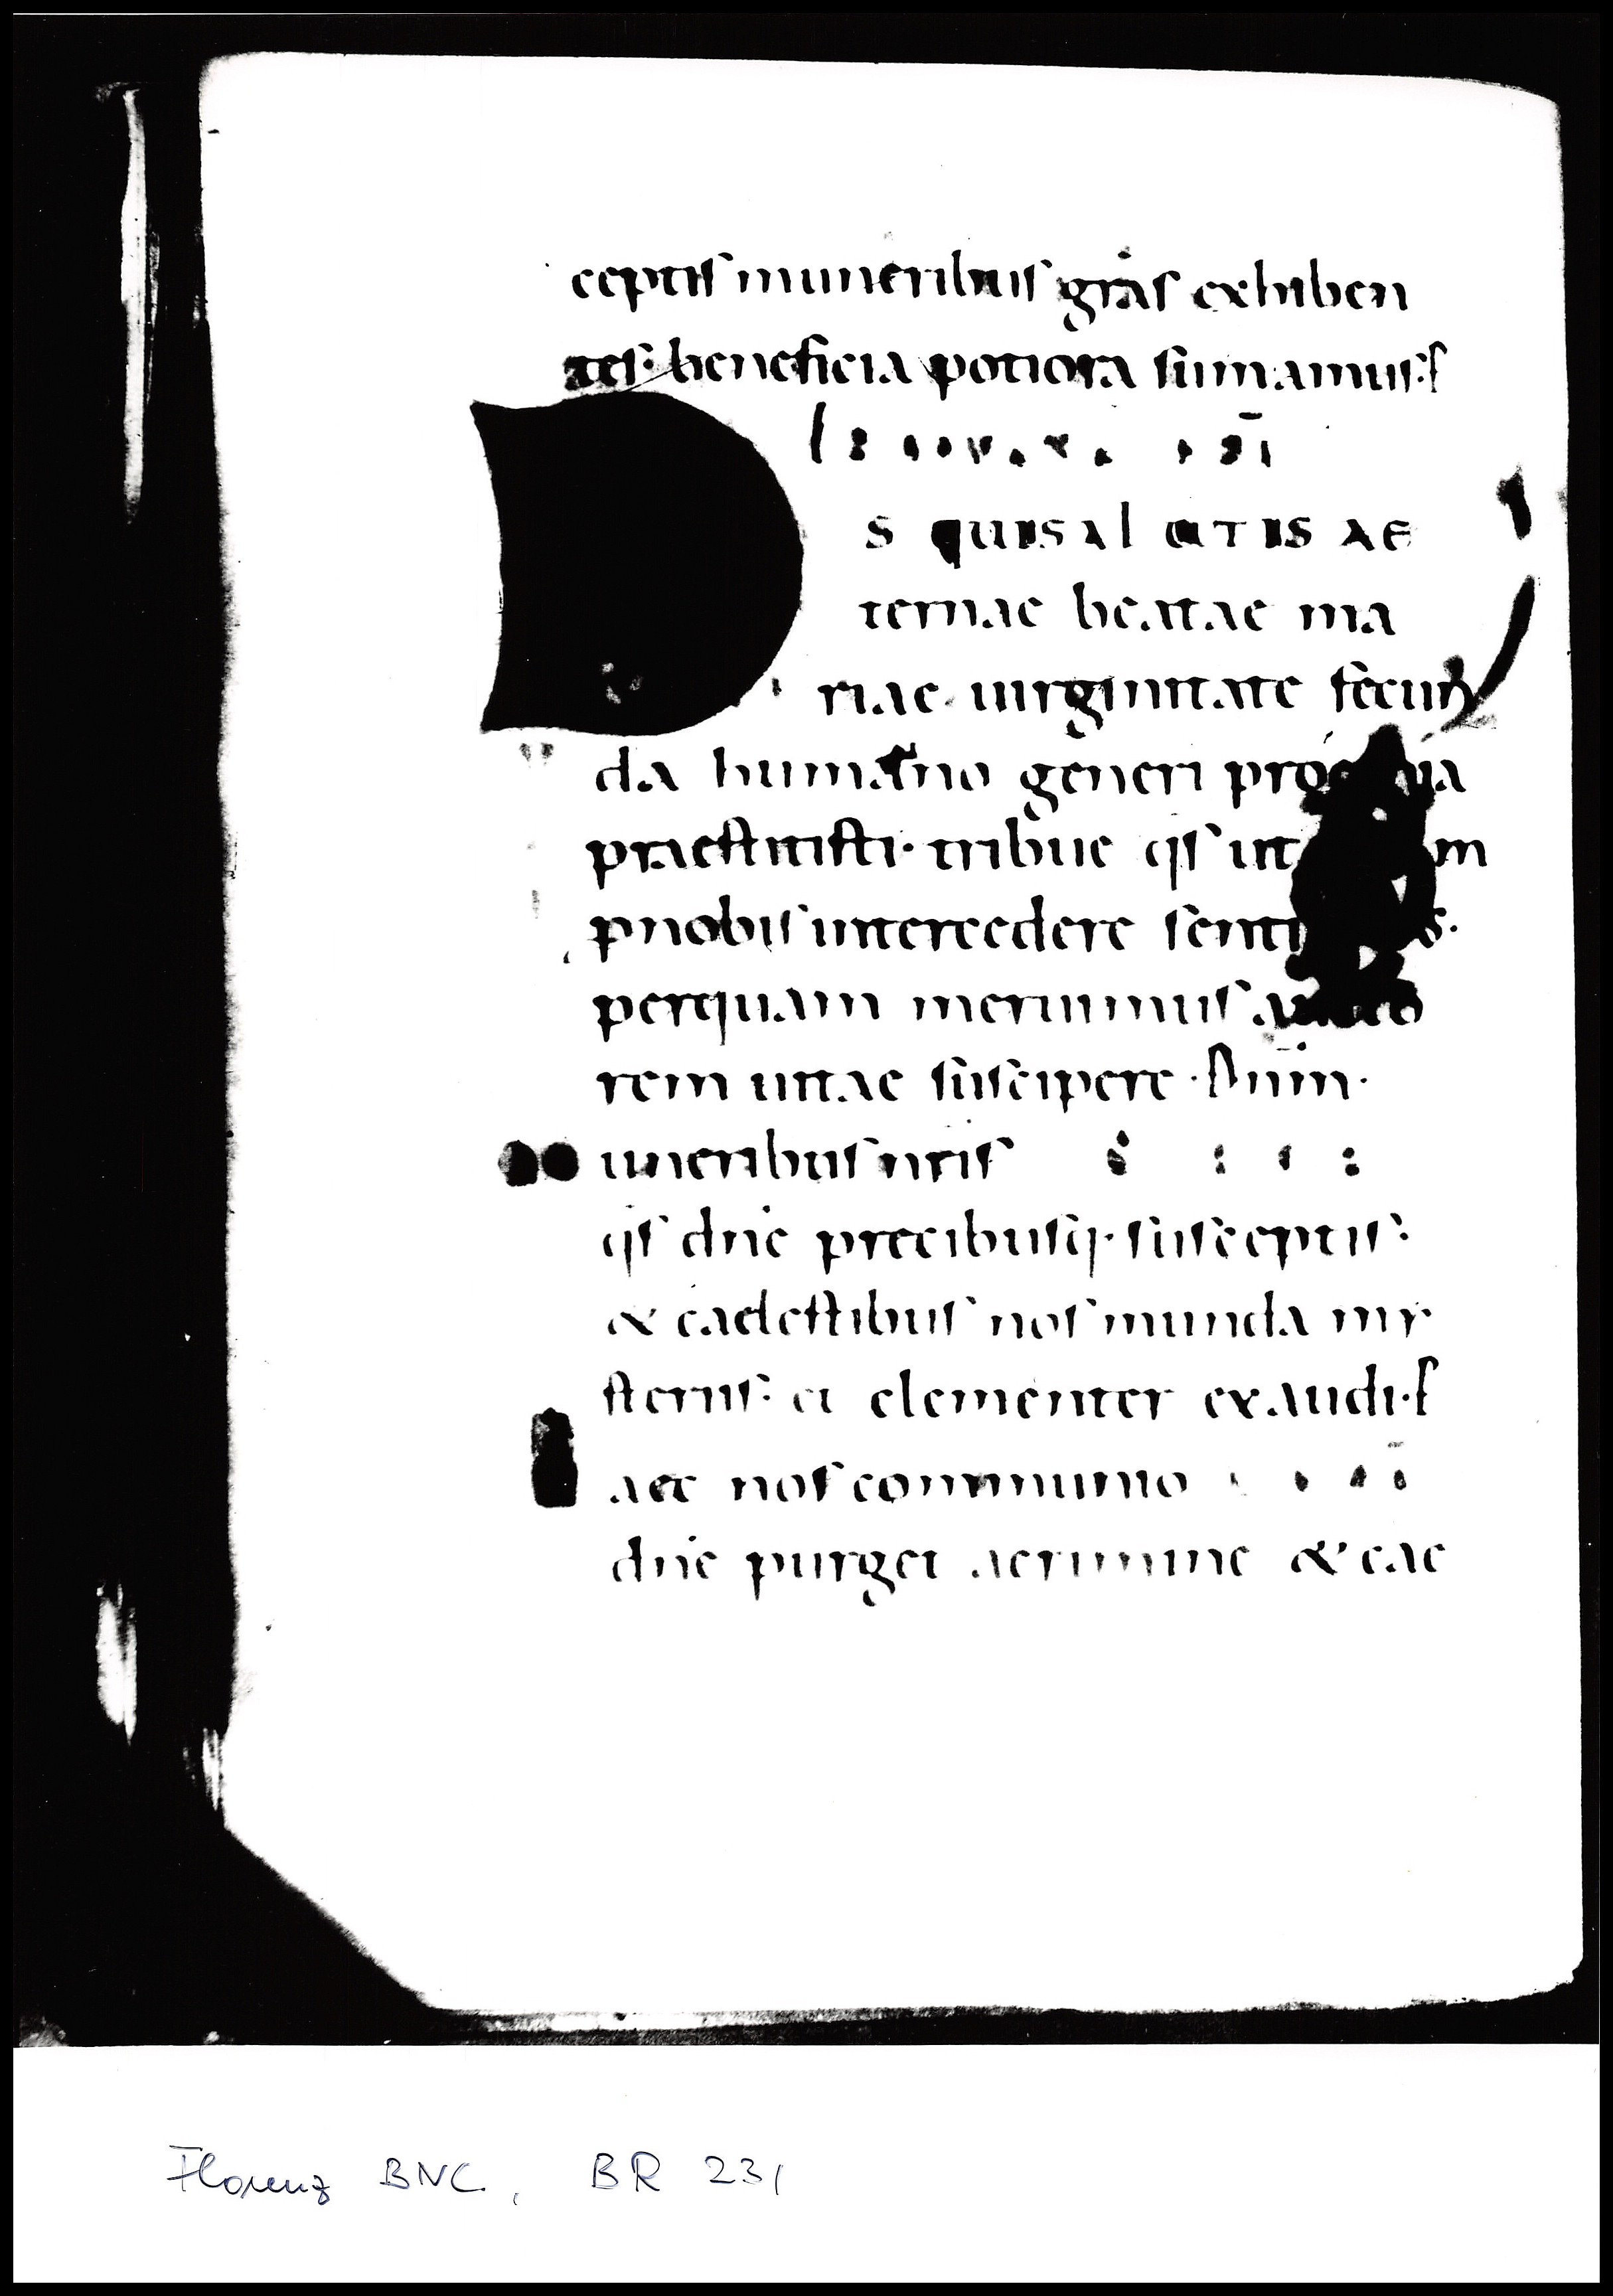 ceptis muneribus gras exhiben
tes· beneficia potiora sumamus·
S QUI SAL UTIS AE
ternae beatae ma
riae uirginitate fecun
da humano generi
praestitisti· tribue qs
p nobis intercedere
per quam meruimus
rem uitae suscipere·
uneribus nris
qs dne precibusq· susceptis·
& caelestibus nos munda my
steriis· et clementer exaudi·
aec nos communio
dne purget a crimine & cae
Florenz BNC, BR 231